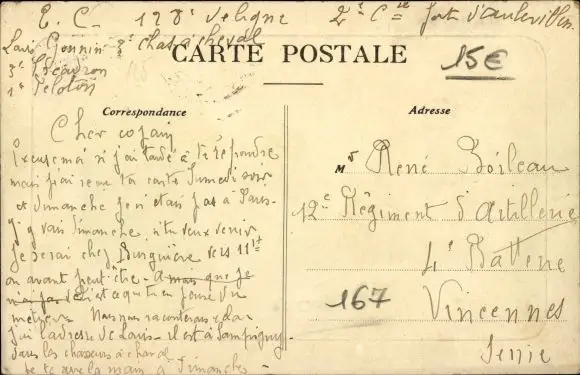 E. C. 128e de ligne 2e Cie fort d'Aubervillers
Louis Gonnin 8e chas à cheval
3e Escadron
1e Peloton
CARTE POSTALE
15€
Correspondance
Adresse
Cher copain
Excuse moi si j'ai tardé à te répondre
mais j'ai reçu ta carte samedi soir
et dimanche je n'étais pas à Paris
j'y vais dimanche, si tu veux venir
je serai chez vers 11h
ou avant peut être. a mais que je
et ce que tu en pense du
metier. Nous nous raconterons cela
j'ai l'adresse de Louis - il est à Sampigny
dans les chasseurs à cheval
Je te serre la main à Dimanche -
Mr René Boileau
12e Régiment d'Artillerie
4e Batterie
167
Vincennes
Seine